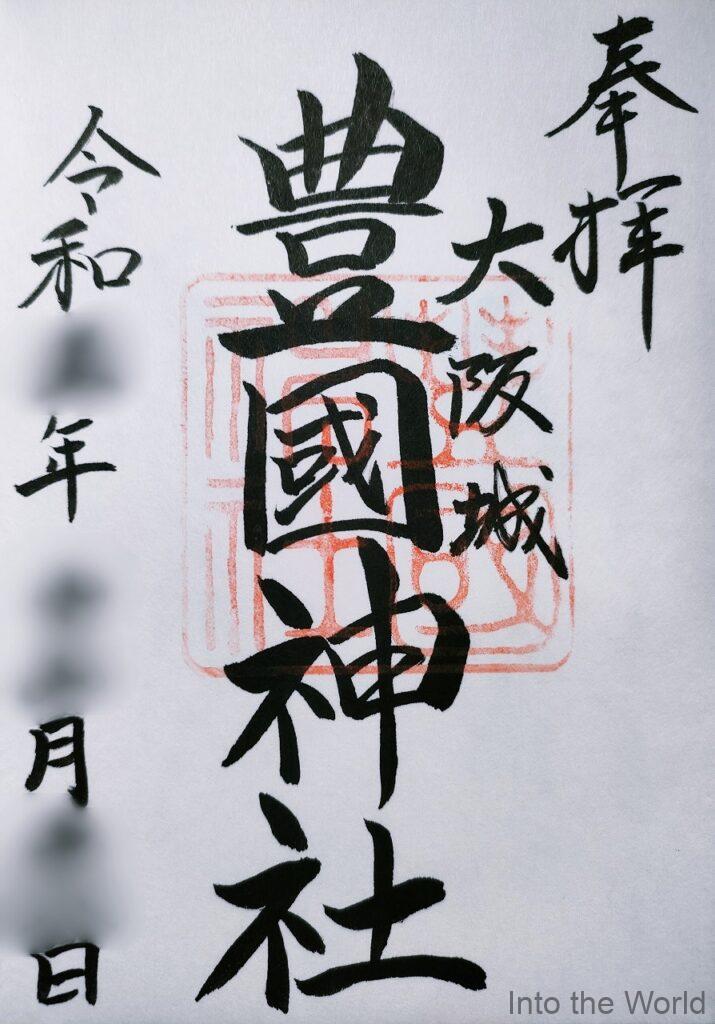 奉拝
大阪城
豊國神社
令和 年 月 日
Into the World